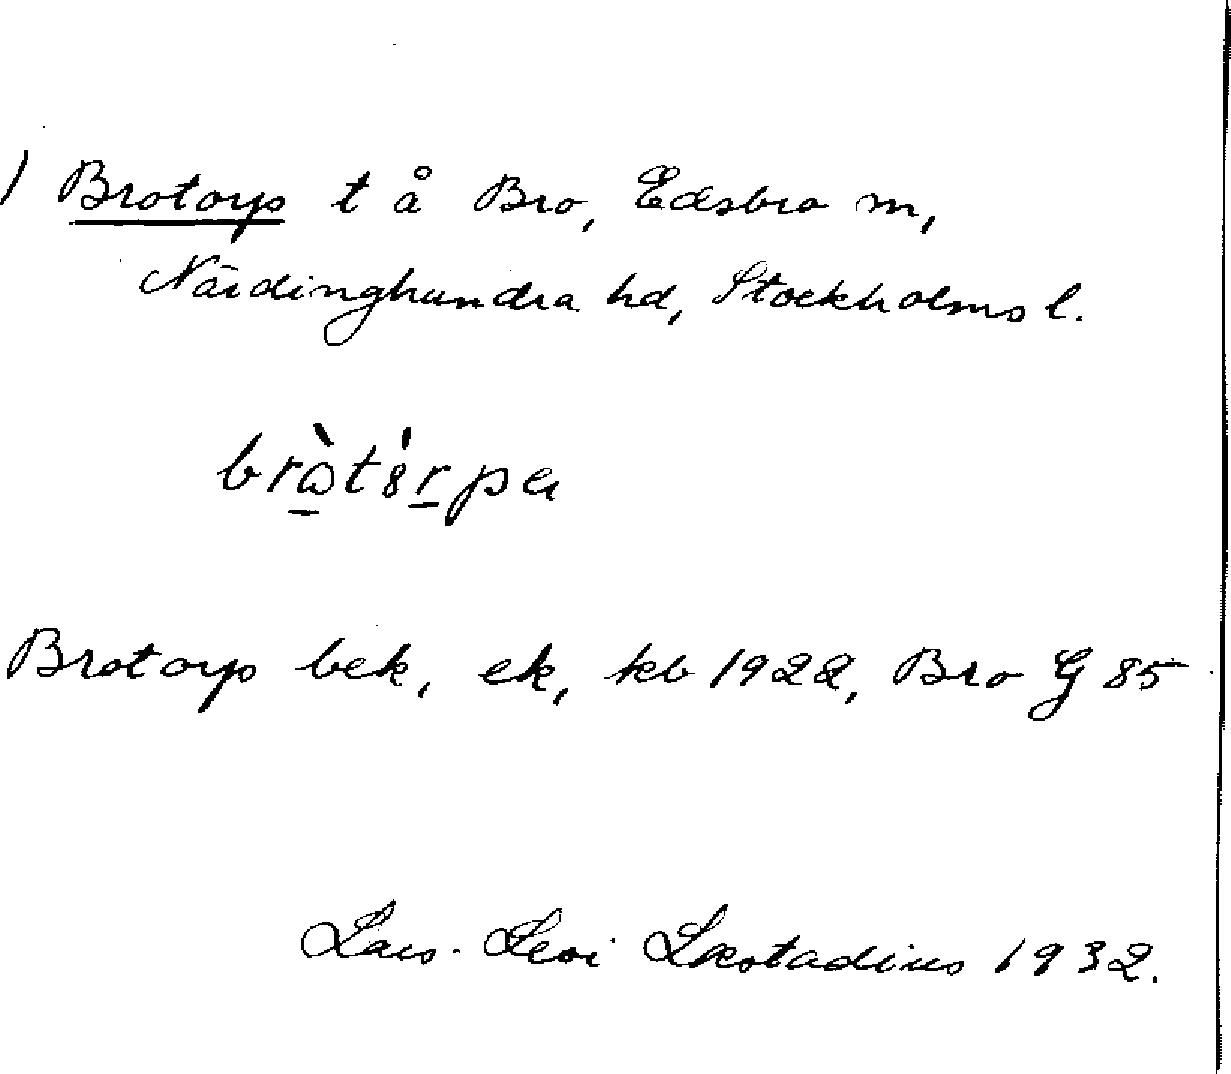 1) Brotorp t å Bro, Edsbro sn,
Närdinghundra hd, Stockholms l.
Brotorp bek, ek, kb 1922, Bro G 85
Lars-Levi Læstadius 1932.